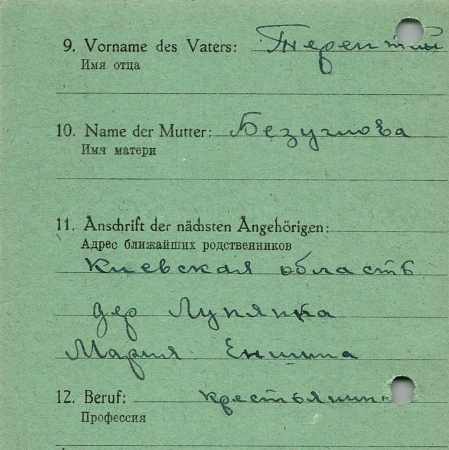 9. Vorname des Vaters: Терентий
Имя отца
10. Name der Mutter: Безуглова
Имя матери
11. Anschrift der nächsten Angehörigen:
Адрес ближайших родственников
Киевская область
дер Лупянка
Мария
12. Beruf:
Профессия